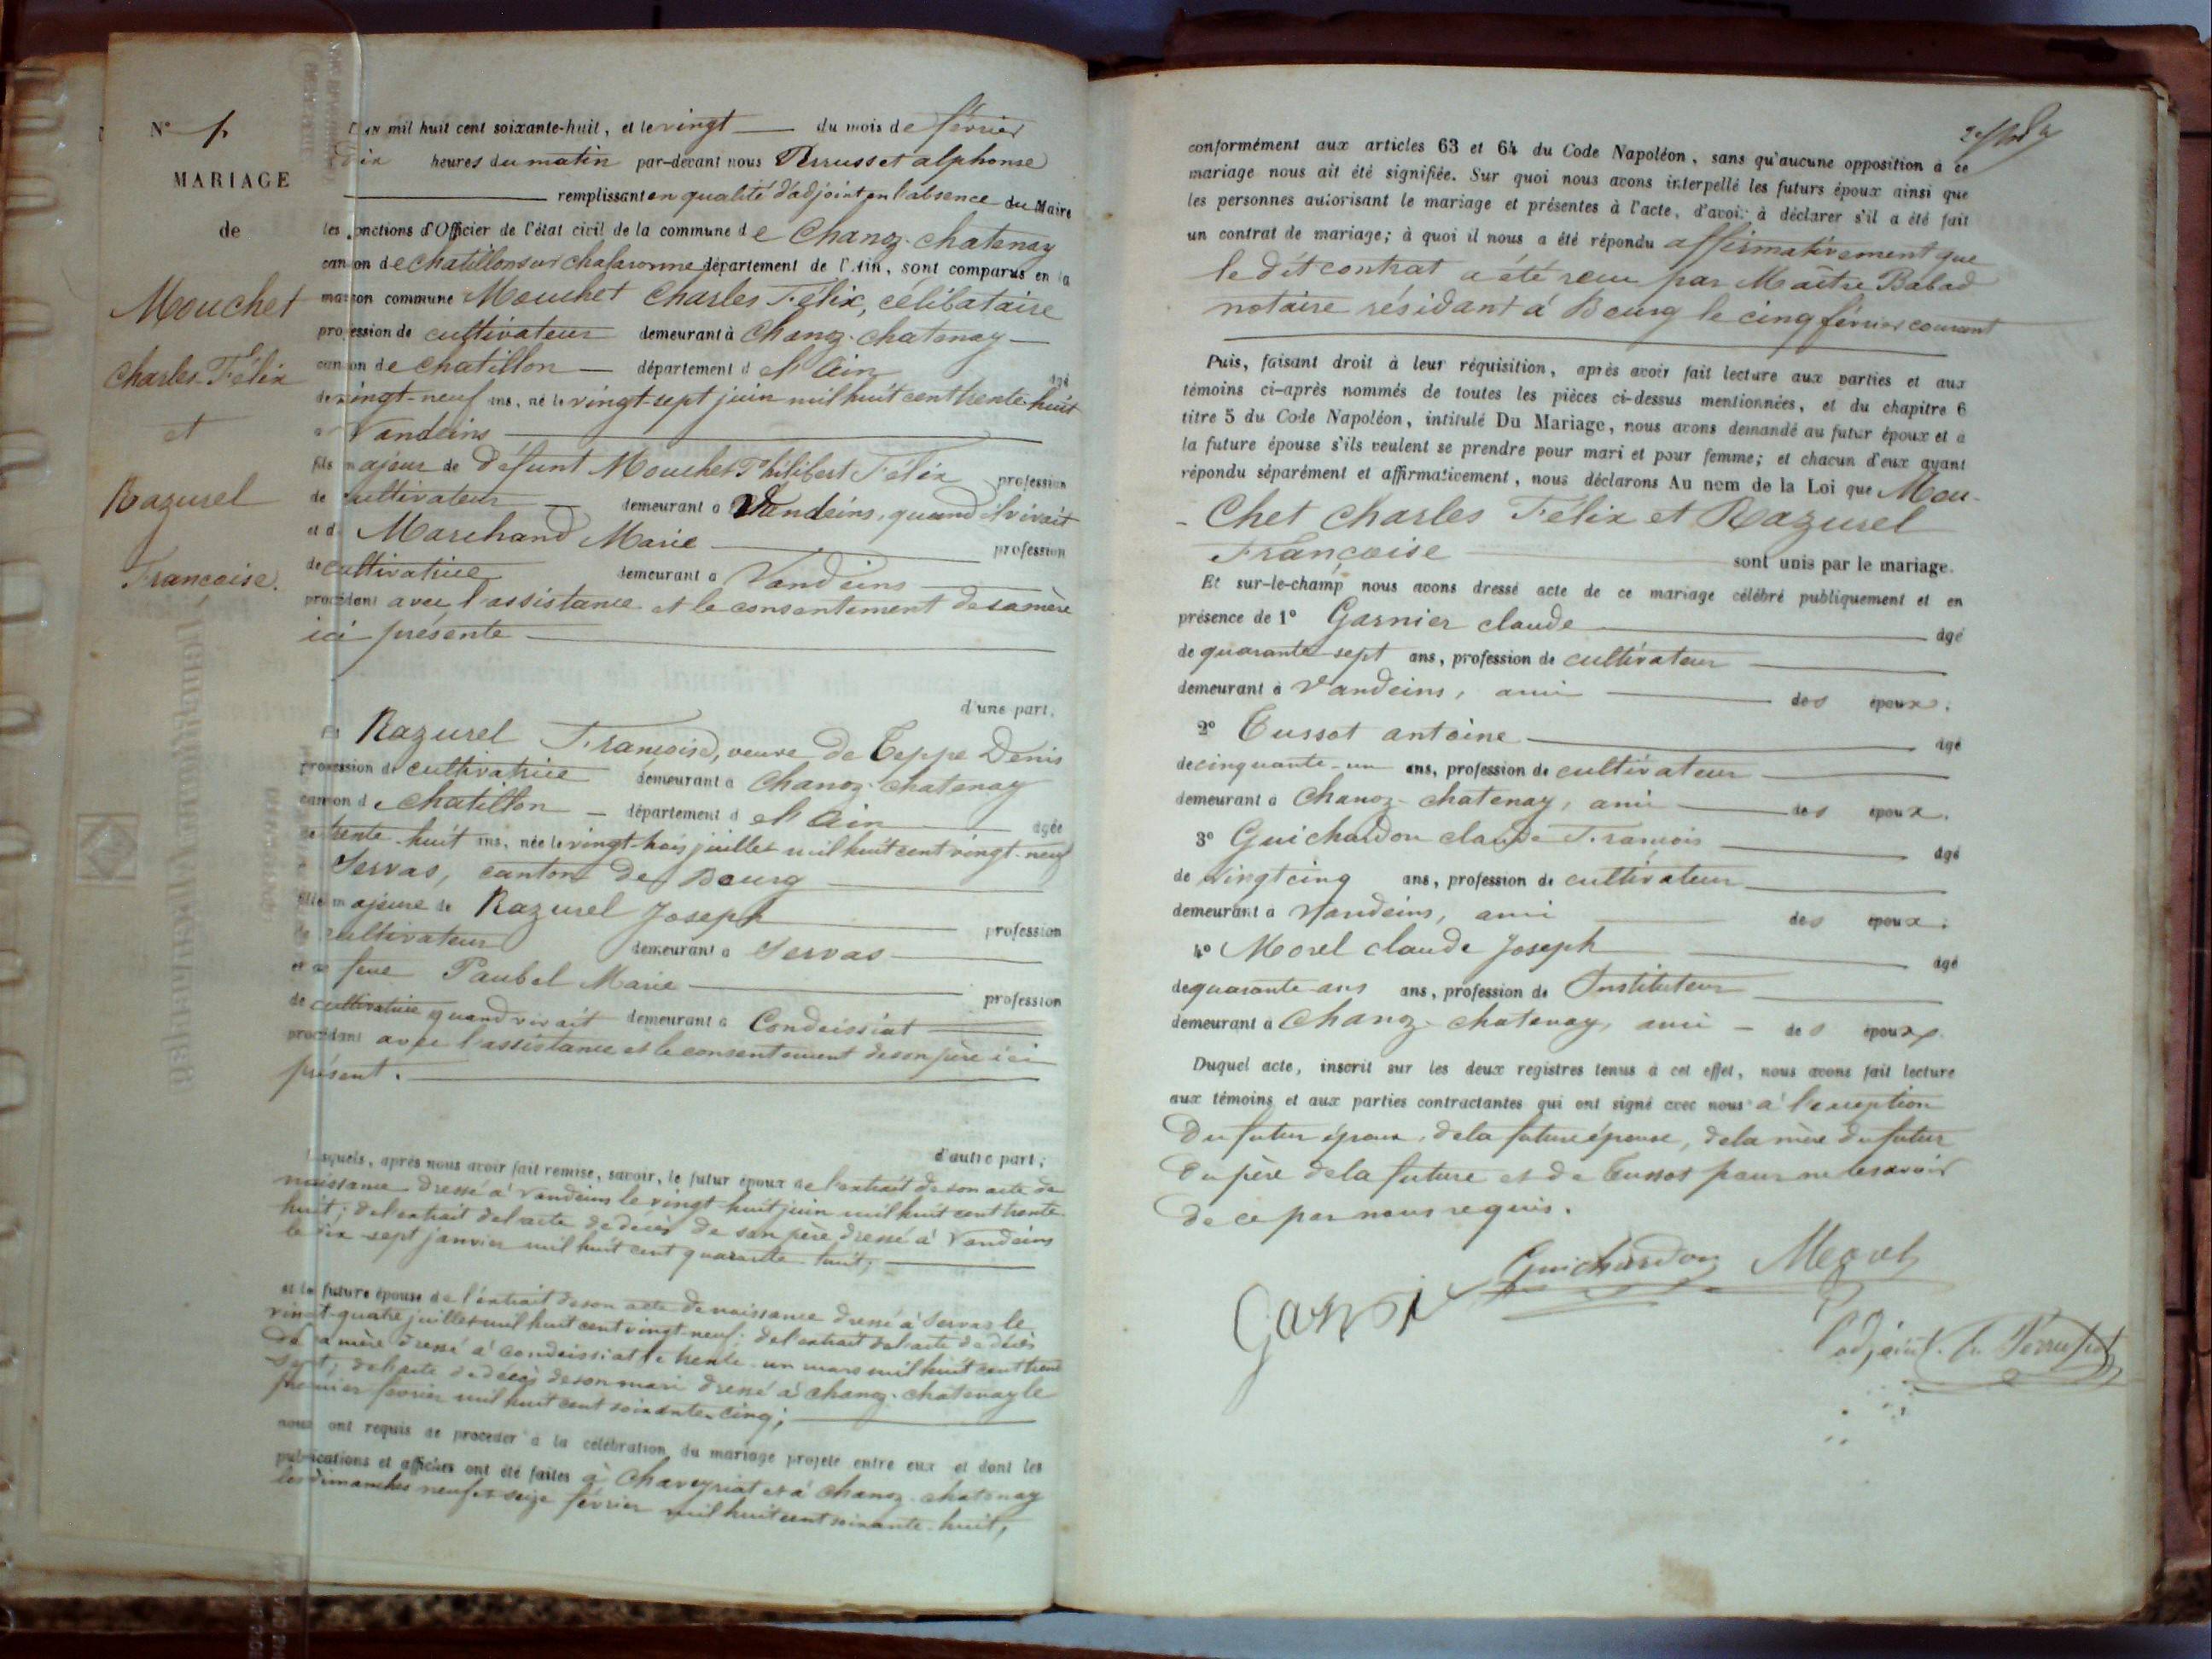 N° 1
MARIAGE
de
Mouchet
Charles Félix
et
Razurel
Françoise.
L'AN mil huit cent soixante-huit, et le vingt du mois de février
dix heures du matin par-devant nous Perrusset alphonse
remplissant en qualité d'adjoint en l'absence du Maire
les fonctions d'Officier de l'état civil de la commune de Chanoz-chatenay
canton de chatillon sur chalaronne département de l'Ain, sont comparus en la
maison commune Mouchet Charles Félix, célibataire
profession de cultivateur demeurant à Chanoz-chatenay
canton de chatillon département de l'Ain âgé
de vingt-neuf ans, né le vingt-sept juin mil huit cent trente-huit
à Vandeins
fils majeur de défunt Mouchet Philibert Félix profession
de cultivateur demeurant à Vandeins, quand il vivait
et de Marchand Marie profession
de cultivatrice demeurant à Vandeins
procédant avec l'assistance et le consentement de sa mère
ici présente
d'une part,
Et Razurel Françoise, veuve de Teppe Denis
profession de cultivatrice demeurant à Chanoz-chatenay
canton de chatillon département de l'Ain âgée
de trente-huit ans, née le vingt-trois juillet mil huit cent vingt-neuf
à Servas, canton de Bourg
fille majeure de Razurel Joseph profession
de cultivateur demeurant à Servas
et de feue Paubel Marie profession
de cultivatrice quand vivait demeurant à Condeissiat
procédant avec l'assistance et le consentement de son père ici
présent.
d'autre part;
Lesquels, après nous avoir fait remise, savoir, le futur époux de l'extrait de son acte de
naissance dressé à Vandeins le vingt-huit juin mil huit cent trente
huit; de l'extrait de l'acte de décès de son père dressé à Vandeins
le dix-sept janvier mil huit cent quarante-huit;
et la future épouse de l'extrait de son acte de naissance dressé à Servas le
vingt-quatre juillet mil huit cent vingt-neuf; de l'extrait de l'acte de décès
de sa mère dressé à Condeissiat le trente-un mars mil huit cent trente
sept; de l'acte de décès de son mari dressé à Chanoz-chatenay le
premier février mil huit cent soixante-cinq;
nous ont requis de procéder à la célébration du mariage projeté entre eux et dont les
publications et affiches ont été faites à Chaveyriat et à Chanoz-chatenay
les dimanches neuf et seize février mil huit cent soixante-huit,
conformément aux articles 63 et 64 du Code Napoléon, sans qu'aucune opposition à ce
mariage nous ait été signifiée. Sur quoi nous avons interpellé les futurs époux ainsi que
les personnes autorisant le mariage et présentes à l'acte, d'avoir à déclarer s'il a été fait
un contrat de mariage; à quoi il nous a été répondu affirmativement que
le dit contrat a été reçu par Maître Babad
notaire résidant à Bourg le cinq février courant
Puis, faisant droit à leur réquisition, après avoir fait lecture aux parties et aux
témoins ci-après nommés de toutes les pièces ci-dessus mentionnées, et du chapitre 6
titre 5 du Code Napoléon, intitulé Du Mariage, nous avons demandé au futur époux et à
la future épouse s'ils veulent se prendre pour mari et pour femme; et chacun d'eux ayant
répondu séparément et affirmativement, nous déclarons Au nom de la Loi que Mou-
-Chet Charles Félix et Razurel
Françoise sont unis par le mariage.
Et sur-le-champ nous avons dressé acte de ce mariage célébré publiquement et en
présence de 1° Garnier claude âgé
de quarante-sept ans, profession de cultivateur
demeurant à Vandeins, ami des époux.
2° Tussot antoine âgé
de cinquante-un ans, profession de cultivateur
demeurant à Chanoz-chatenay, ami des époux.
3° Guichardon claude François âgé
de vingt cinq ans, profession de cultivateur
demeurant à Vandeins, ami des époux.
4° Morel claude Joseph âgé
de quarante ans ans, profession de Instituteur
demeurant à Chanoz-chatenay, ami des époux.
Duquel acte, inscrit sur les deux registres tenus à cet effet, nous avons fait lecture
aux témoins et aux parties contractantes qui ont signé avec nous à l'exception
du futur époux, de la future épouse, de la mère du futur
du père de la future et de Tussot pour ne le savoir
de ce par nous requis.
Guichardon Morel
Garni
l'adjoint. Perrusset